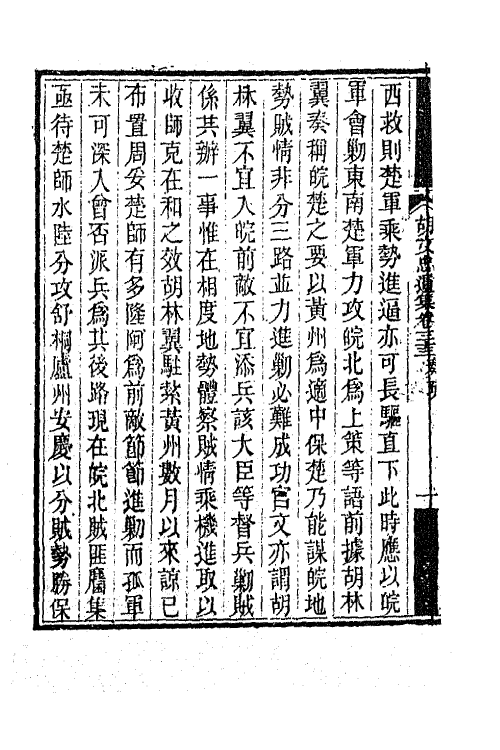 西救則楚軍乘勢進逼亦可長驅直下此時應以皖
軍會勦東南楚軍力攻皖北爲上策等語前據胡林
翼奏稱皖楚之要以黃州爲適中保楚乃能謀皖地
勢賊情非分三路並力進勦必難成功官文亦謂胡
林翼不宜入皖前敵不宜添兵該大臣等督兵勦賊
係共辦一事惟在相度地勢體察賊情乘機進取以
收師克在和之效胡林翼駐紮黃州數月以來諒已
布置周妥楚師有多隆阿爲前敵節節進勦而孤軍
未可深入曾否派兵爲其後路現在皖北賊匪麕集
亟待楚師水陸分攻舒桐廬州安慶以分賊勢勝保
胡文忠遺集卷三十